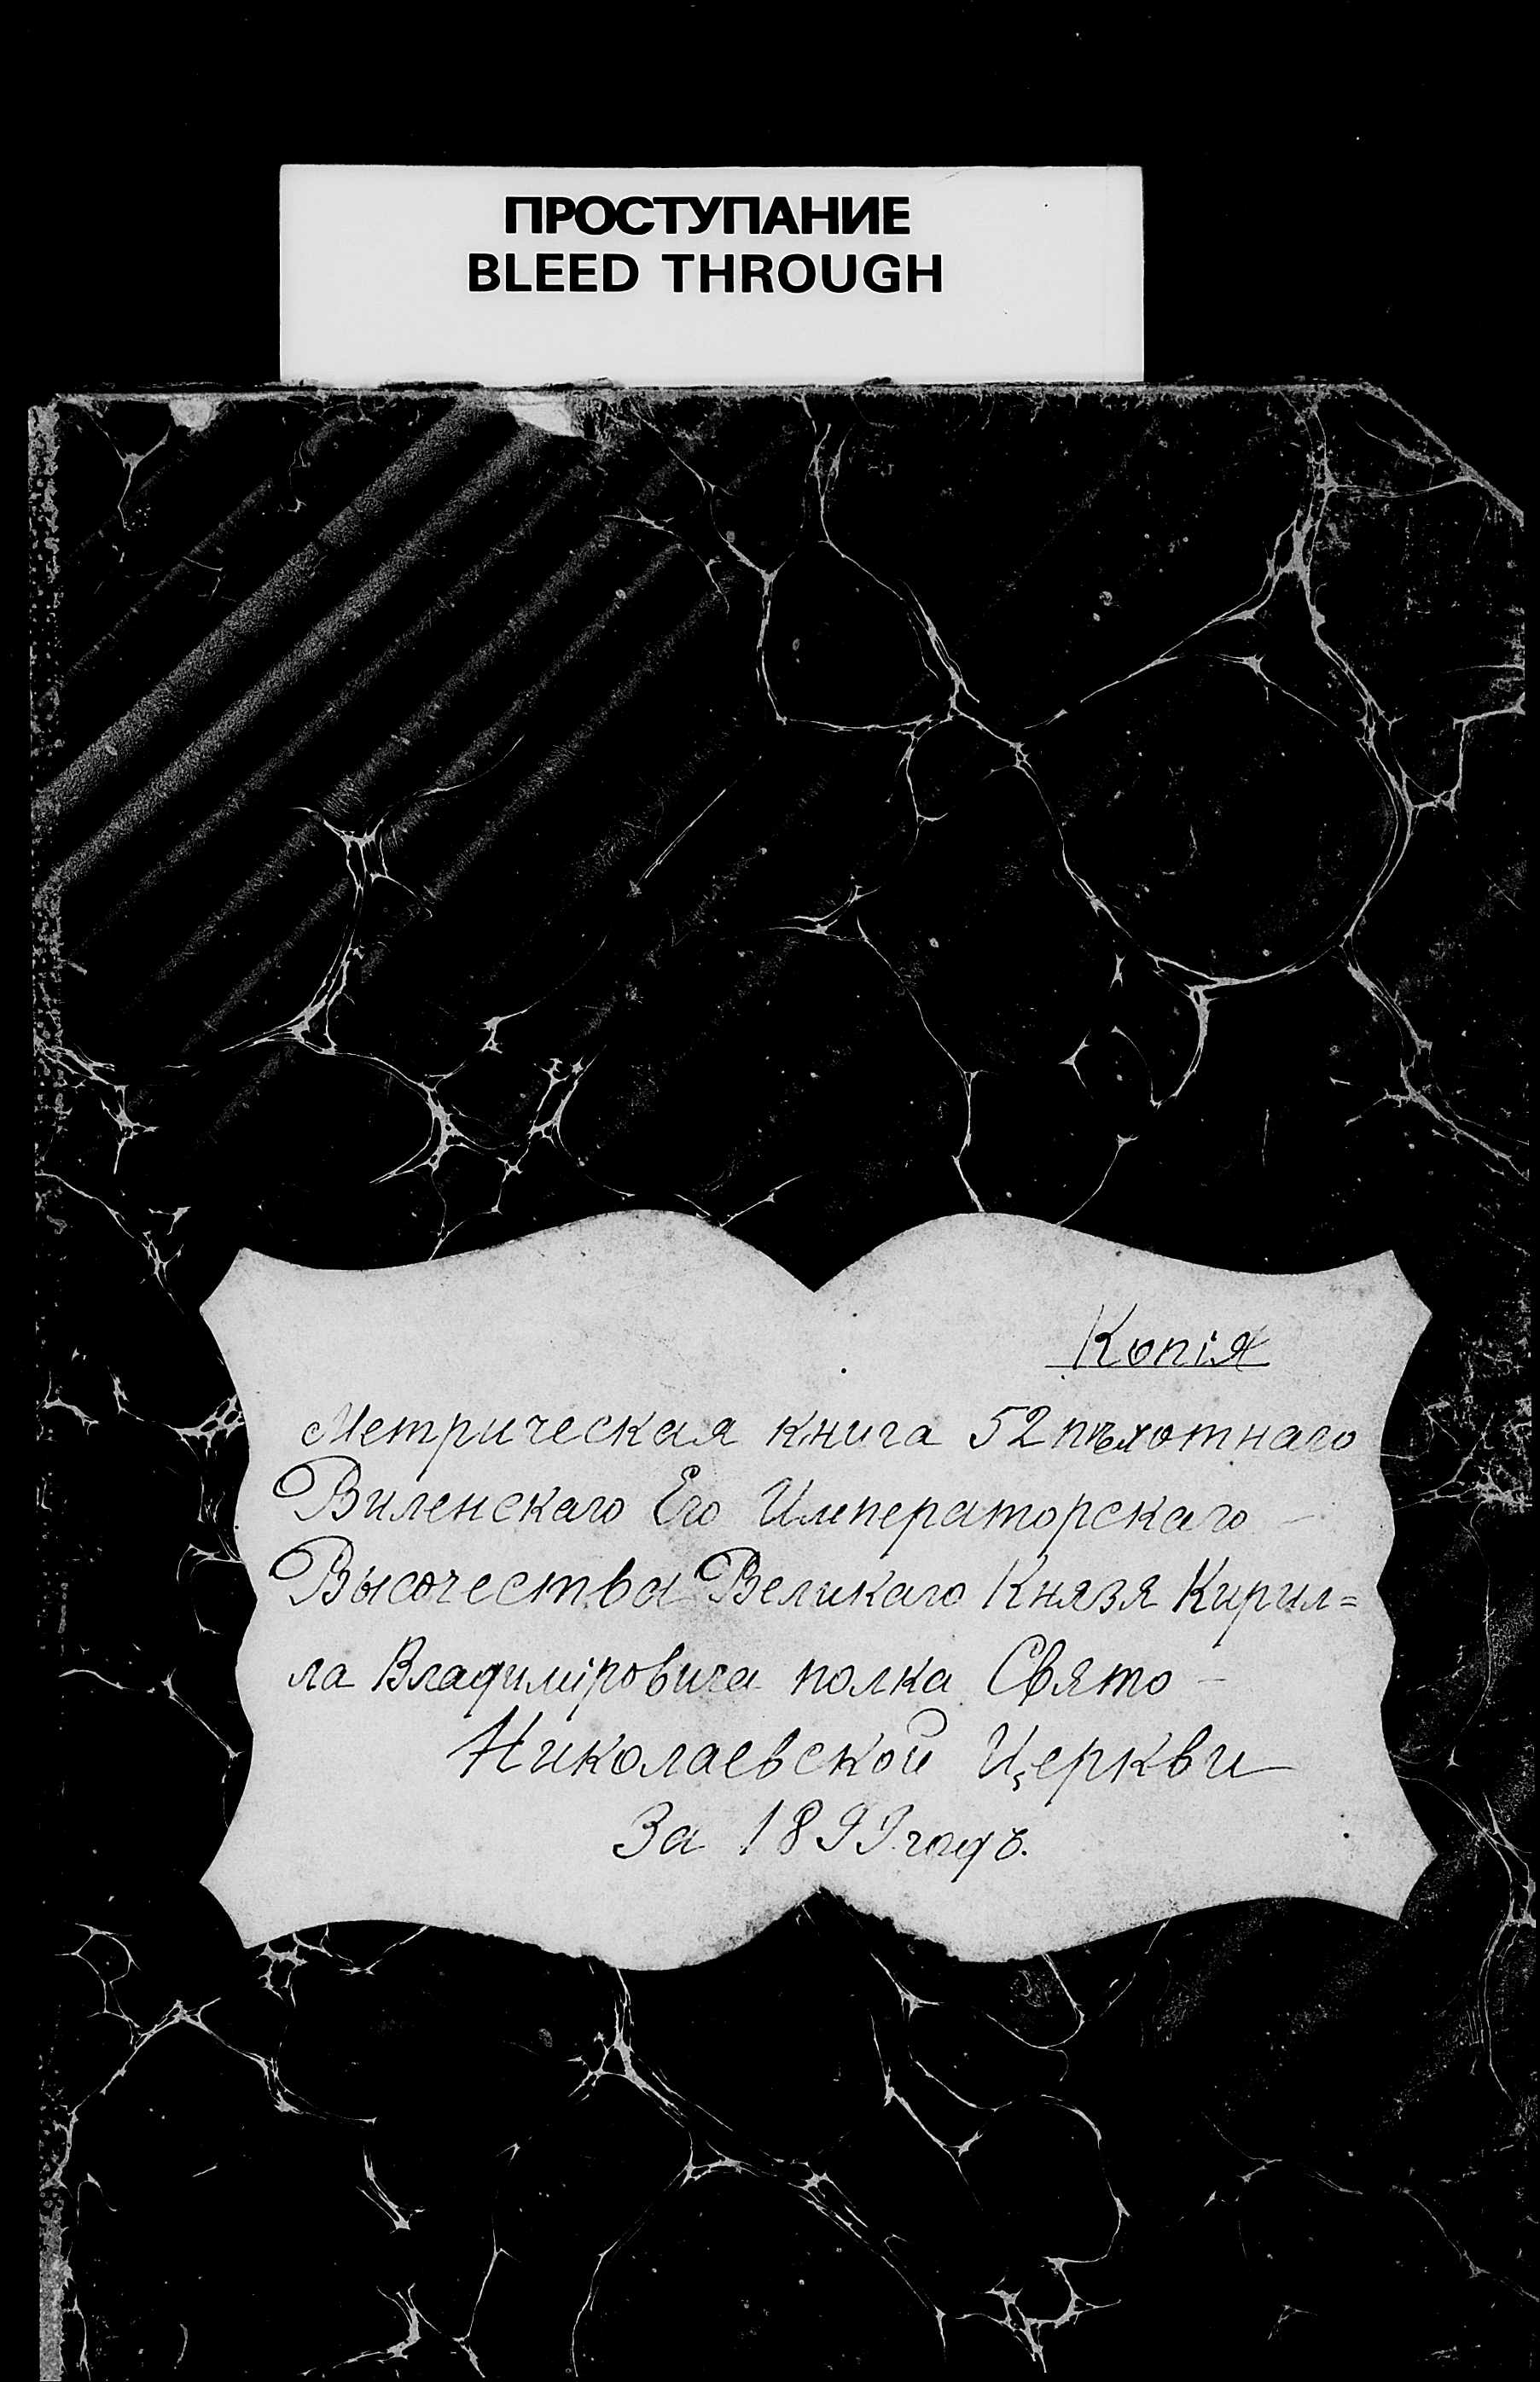 ПРОСТУПАНИЕ
BLEED THROUGH
Копія
Метрическая книга 52 пѣхотнаго
Виленскаго Его Императорскаго –
Высочества Великаго Князя Кирил=
ла Владиміровича полка Свято –
Николаевской Церкви
За 1899 годъ.